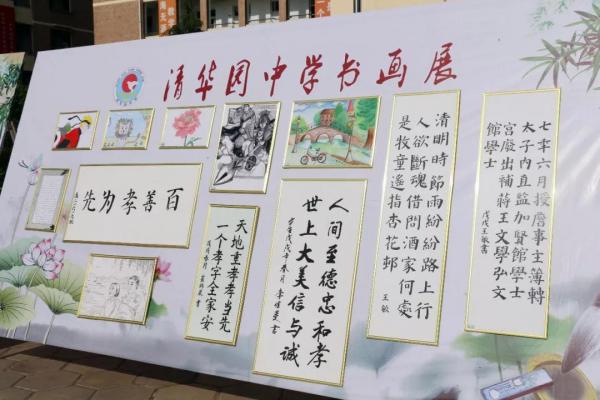 清华园中学书画展
百善孝为先
天地重孝孝当先
一个孝字全家安
人间至德忠和孝
世上大美信与诚
清明時節雨紛紛路上行
人欲斷魂借問酒家何處
是牧童遙指杏花邨
王敏
七年六月授詹事主簿轉
太子内直監加賢館學士
宫廢出補蒋王文學弘文
館學士
戊戌王敏書